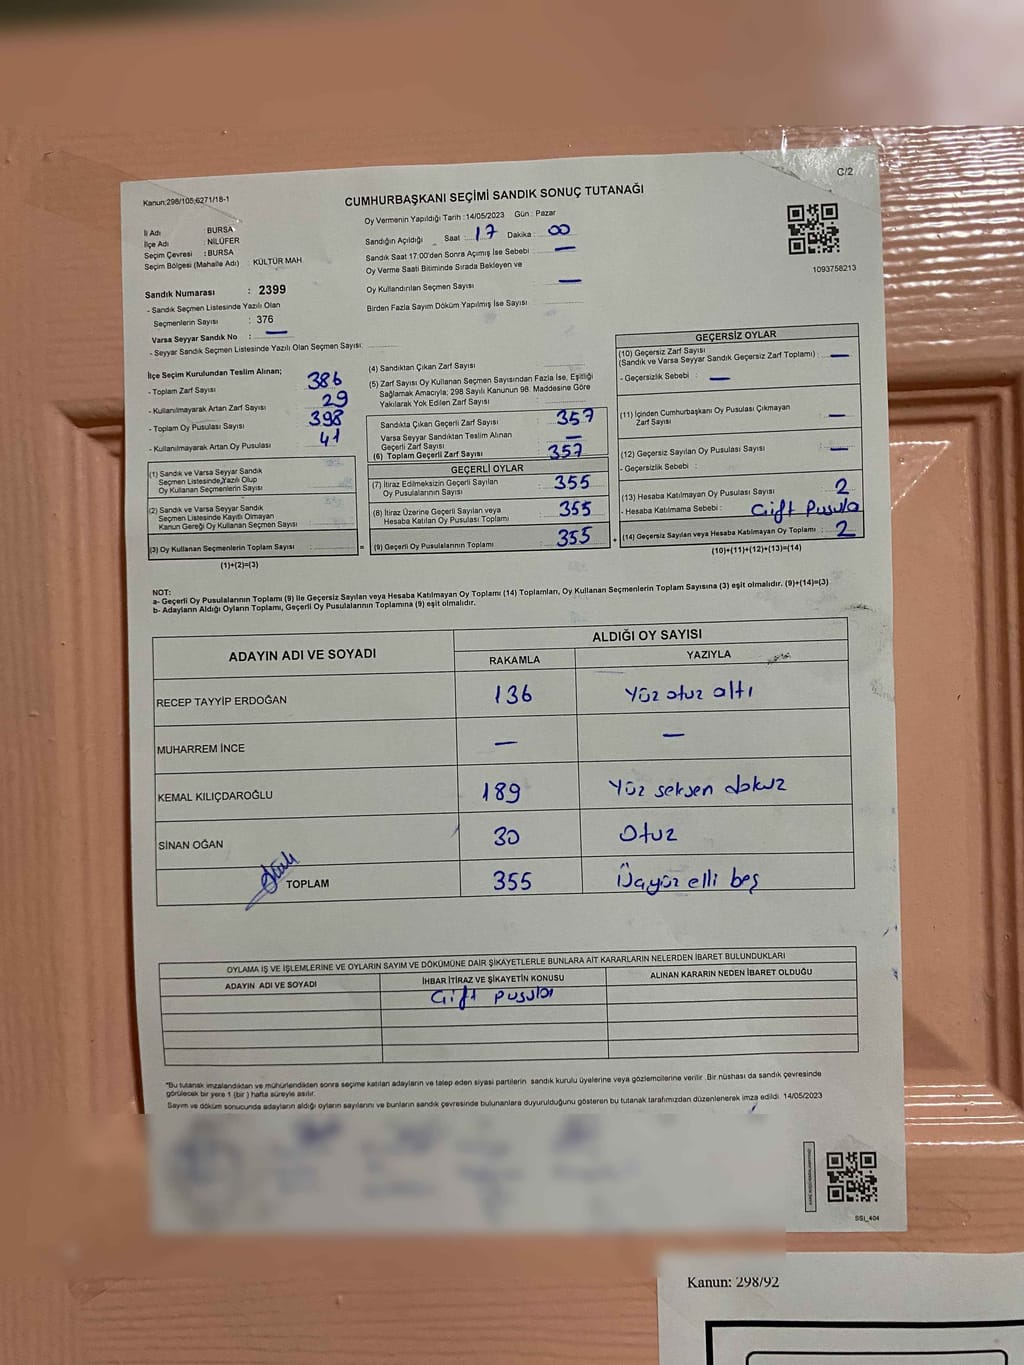 C/2
Kanun:298/105;6271/18-1
CUMHURBAŞKANI SEÇİMİ SANDIK SONUÇ TUTANAĞI
Oy Vermenin Yapıldığı Tarih :14/05/2023 Gün : Pazar
İl Adı : BURSA
İlçe Adı : NİLÜFER
Seçim Çevresi : BURSA
Seçim Bölgesi (Mahalle Adı) : KÜLTÜR MAH
Sandığın Açıldığı Saat : 17 Dakika : 00
Sandık Saat 17:00'den Sonra Açımış İse Sebebi : —
Oy Verme Saati Bitiminde Sırada Bekleyen ve
Oy Kullandırılan Seçmen Sayısı —
Birden Fazla Sayım Döküm Yapılmış İse Sayısı
1093758213
Sandık Numarası : 2399
- Sandık Seçmen Listesinde Yazılı Olan
Seçmenlerin Sayısı : 376
Varsa Seyyar Sandık No : —
- Seyyar Sandık Seçmen Listesinde Yazılı Olan Seçmen Sayısı:
İlçe Seçim Kurulundan Teslim Alınan;
- Toplam Zarf Sayısı 386
- Kullanılmayarak Artan Zarf Sayısı 29
- Toplam Oy Pusulası Sayısı 398
- Kullanılmayarak Artan Oy Pusulası 41
(1) Sandık ve Varsa Seyyar Sandık
Seçmen Listesinde Yazılı Olup
Oy Kullanan Seçmenlerin Sayısı
(2) Sandık ve Varsa Seyyar Sandık
Seçmen Listesinde Kayıtlı Olmayan
Kanun Gereği Oy Kullanan Seçmen Sayısı
(3) Oy Kullanan Seçmenlerin Toplam Sayısı =
(1)+(2)=(3)
(4) Sandıktan Çıkan Zarf Sayısı
(5) Zarf Sayısı Oy Kullanan Seçmen Sayısından Fazla İse, Eşitliği
Sağlamak Amacıyla; 298 Sayılı Kanunun 98. Maddesine Göre
Yakılarak Yok Edilen Zarf Sayısı
Sandıkta Çıkan Geçerli Zarf Sayısı 357
Varsa Seyyar Sandıktan Teslim Alınan
Geçerli Zarf Sayısı —
(6) Toplam Geçerli Zarf Sayısı 357
GEÇERLİ OYLAR
(7) İtiraz Edilmeksizin Geçerli Sayılan
Oy Pusulalarının Sayısı 355
(8) İtiraz Üzerine Geçerli Sayılan veya
Hesaba Katılan Oy Pusulası Toplamı 355
(9) Geçerli Oy Pusulalarının Toplamı 355 +
GEÇERSİZ OYLAR
(10) Geçersiz Zarf Sayısı
(Sandık ve Varsa Seyyar Sandık Geçersiz Zarf Toplamı) : —
- Geçersizlik Sebebi : —
(11) İçinden Cumhurbaşkanı Oy Pusulası Çıkmayan
Zarf Sayısı —
(12) Geçersiz Sayılan Oy Pusulası Sayısı : —
- Geçersizlik Sebebi :
(13) Hesaba Katılmayan Oy Pusulası Sayısı 2
- Hesaba Katılmama Sebebi : Çift Pusula
(14) Geçersiz Sayılan veya Hesaba Katılmayan Oy Toplamı : 2
(10)+(11)+(12)+(13)=(14)
NOT:
a- Geçerli Oy Pusulalarının Toplamı (9) ile Geçersiz Sayılan veya Hesaba Katılmayan Oy Toplamı (14) Toplamları, Oy Kullanan Seçmenlerin Toplam Sayısına (3) eşit olmalıdır. (9)+(14)=(3)
b- Adayların Aldığı Oyların Toplamı, Geçerli Oy Pusulalarının Toplamına (9) eşit olmalıdır.
ADAYIN ADI VE SOYADI
ALDIĞI OY SAYISI
RAKAMLA YAZIYLA
RECEP TAYYİP ERDOĞAN 136 Yüz otuz altı
MUHARREM İNCE — —
KEMAL KILIÇDAROĞLU 189 Yüz seksen dokuz
SİNAN OĞAN 30 Otuz
TOPLAM 355 Üçyüz elli beş
OYLAMA İŞ VE İŞLEMLERİNE VE OYLARIN SAYIM VE DÖKÜMÜNE DAİR ŞİKAYETLERLE BUNLARA AİT KARARLARIN NELERDEN İBARET BULUNDUKLARI
ADAYIN ADI VE SOYADI İHBAR İTİRAZ VE ŞİKAYETİN KONUSU ALINAN KARARIN NEDEN İBARET OLDUĞU
Çift pusula
"Bu tutanak imzalandıktan ve mühürlendikten sonra seçime katılan adayların ve talep eden siyasi partilerin sandık kurulu üyelerine veya gözlemcilerine verilir .Bir nüshası da sandık çevresinde
görülecek bir yere 1 (bir ) hafta süreyle asılır.
Sayım ve döküm sonucunda adayların aldığı oyların sayılarını ve bunların sandık çevresinde bulunanlara duyurulduğunu gösteren bu tutanak tarafımızdan düzenlenerek imza edildi. 14/05/2023
SSI_404
Kanun: 298/92